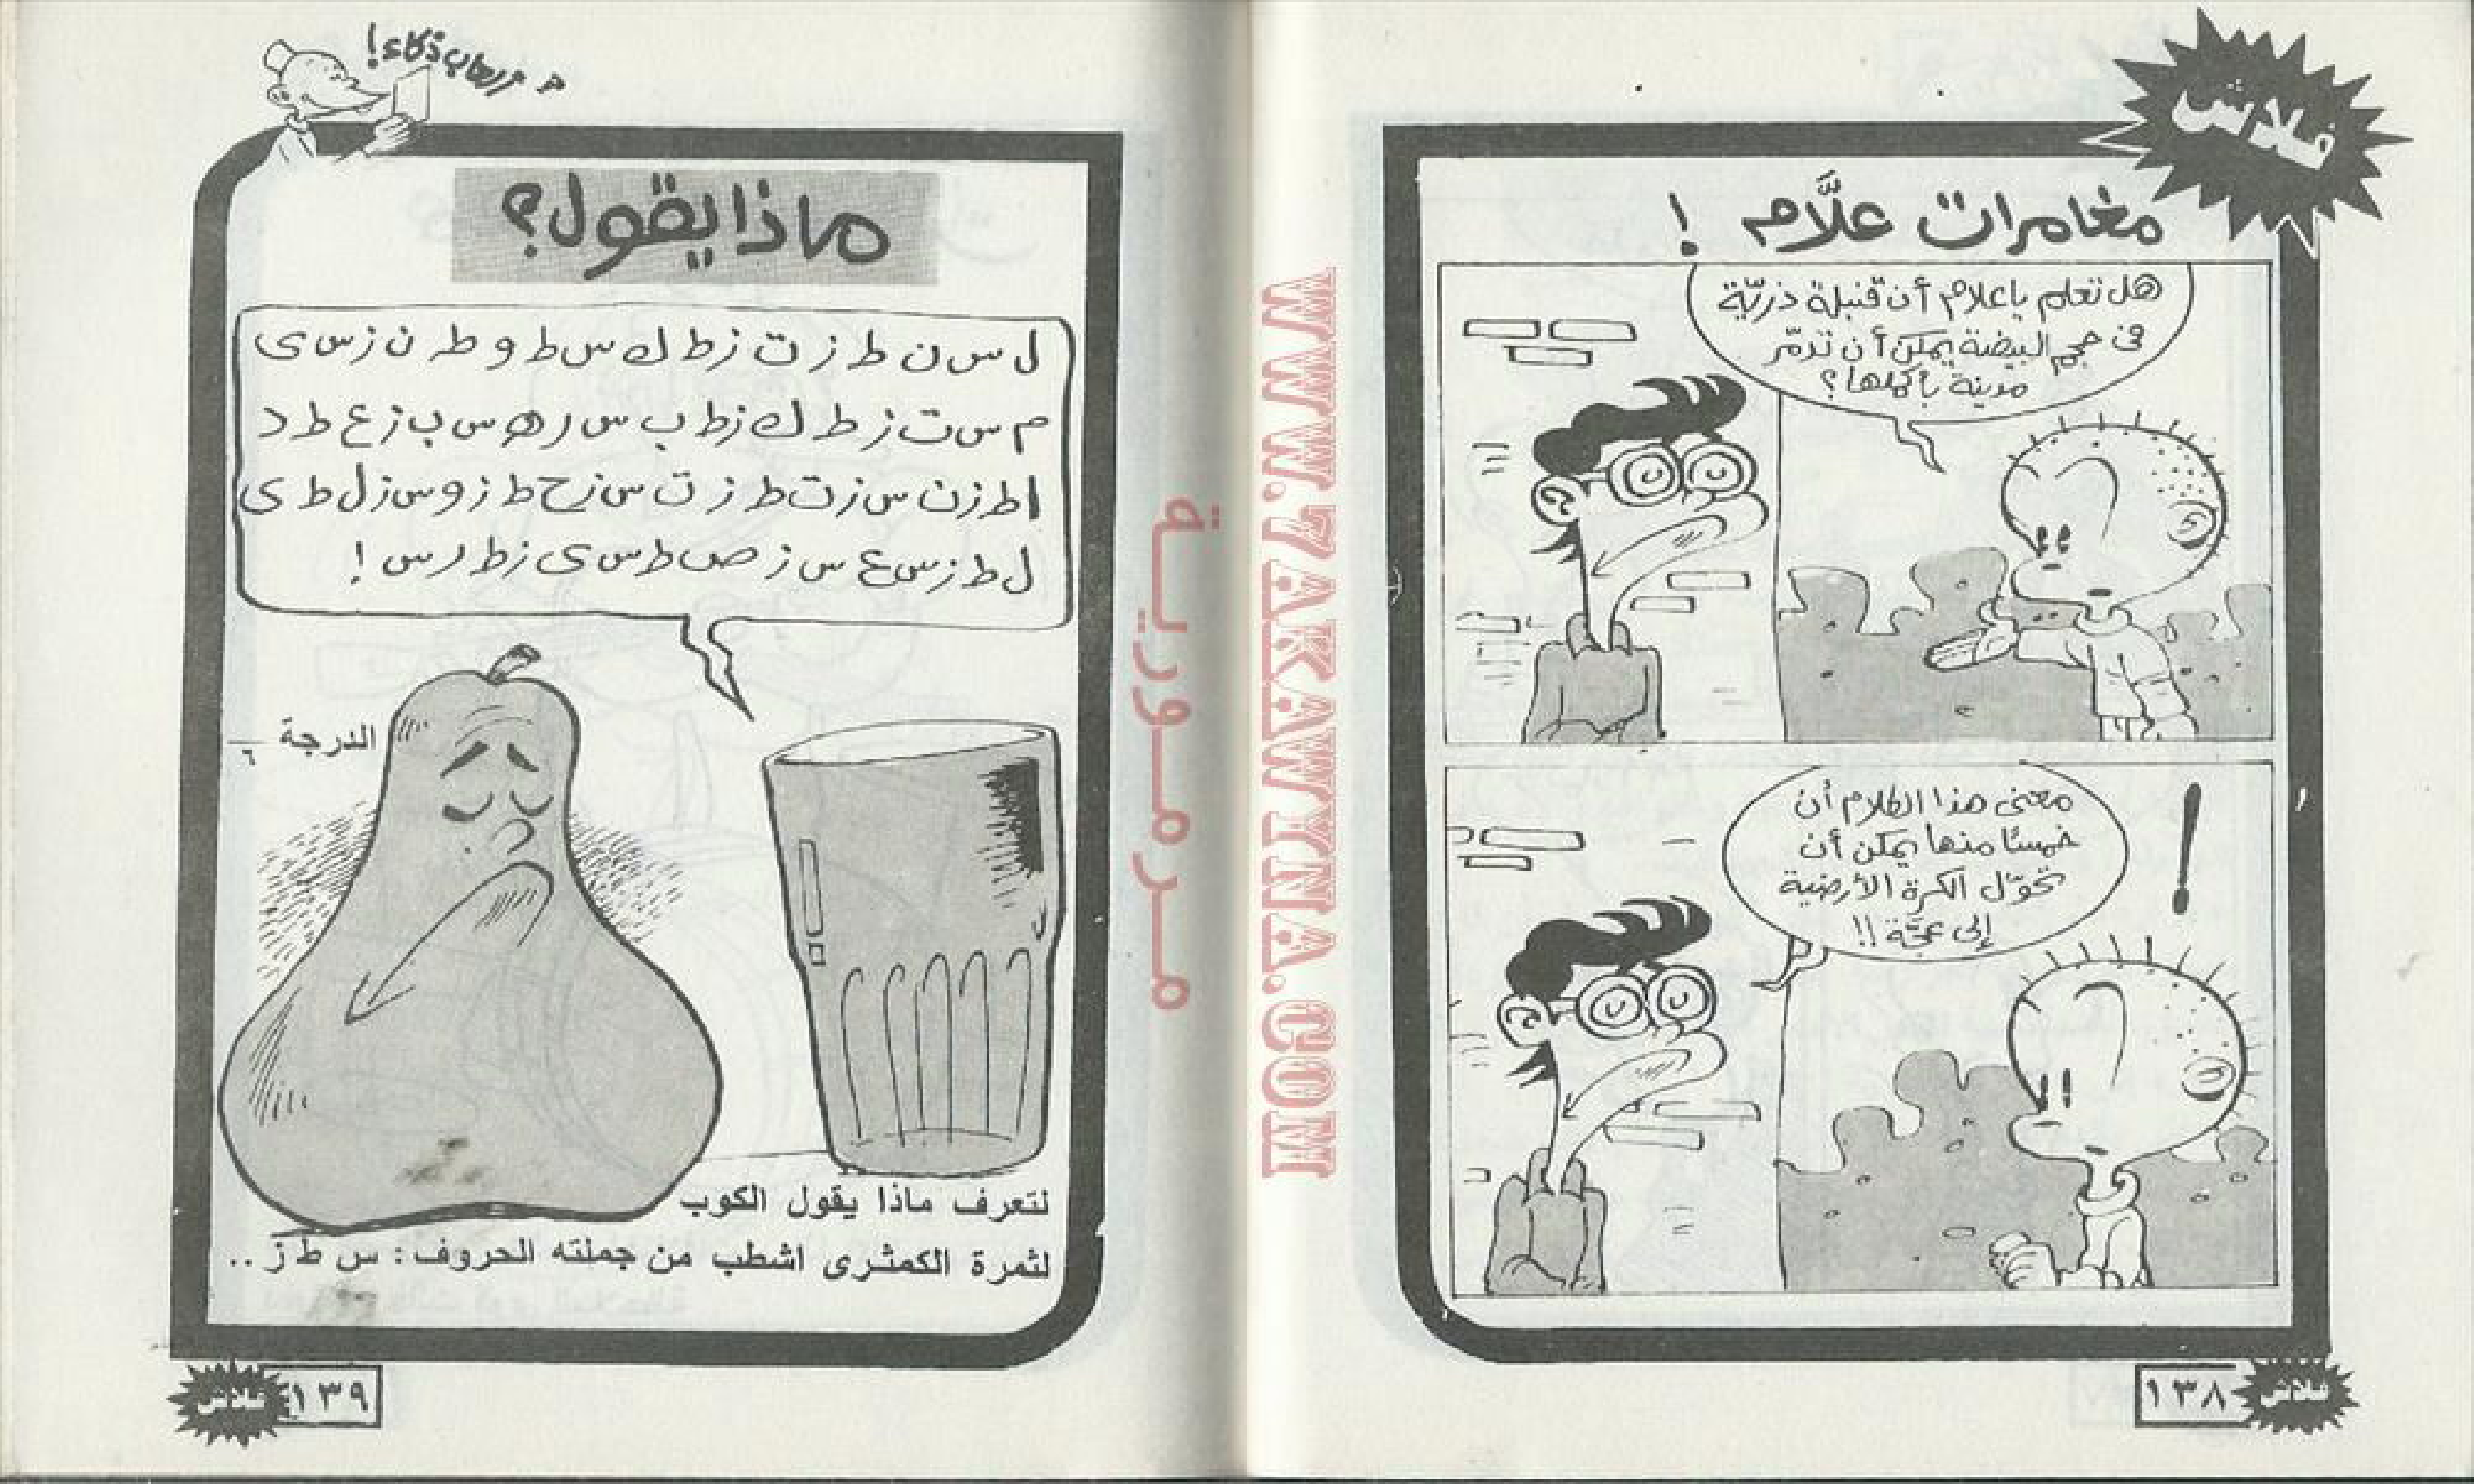 فلاش
مغامرات علَّام !
هل تعلم ياعلام أن قنبلة ذريّة
فى حجم البيضة يمكن أن تدمّر
مدينة بأكملها؟
معنى هذا الكلام أن
خمسًا منها يمكن أن
تحوّل الكرة الأرضية
إلى عجَّة !!
١٣٨ فلاش
WWW.7AKAWINA.COM
مـرمـوريـة
ذكاء!
ماذا يقول؟
ل س ن ط ز ت ز ط ك س ط و ط ن ز س ى
م س ت ز ط ك ز ط ب س ر ه س ب ز ع ط د
ا ط ز ن س ز ت ط ز ت س ز ح ط ز و س ز ل ط ى
ل ط ز س ع س ز ص ط س ى ز ط ر س !
الدرجة ـــ
٦
لتعرف ماذا يقول الكوب
لثمرة الكمثرى اشطب من جملته الحروف : س ط ز ..
١٣٩ فلاش